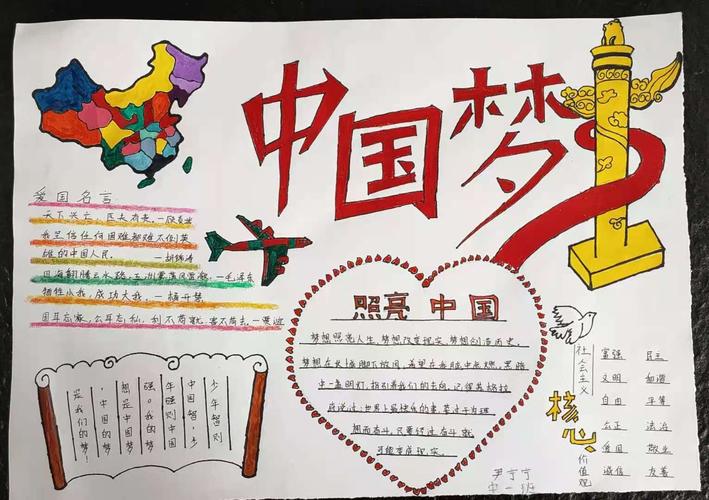 中国梦
爱国名言
天下兴亡,匹夫有责。—顾炎武
我坚信任何困难都难不倒英
雄的中国人民。——胡锦涛
四海翻腾云水怒,五洲震荡风雷激。—毛泽东
牺牲小我,成功大我。—杨开慧
国耳忘家,公耳忘私,利不苟就,害不苟去。—贾谊
照亮中国
梦想照亮人生,梦想改变现实,梦想创造历史。
梦想在长城脚下放飞,希望在我脑中点燃。黑路
中一盏明灯,指引着我们的方向。记得英格拉
姆说过:世界上最快乐的事,莫过于为理
想而奋斗。只要经过奋斗就
可能变成现实。
少年智则
中国智,少
年强则中国
强。我的梦
想是中国梦
,中国的梦
是我们的梦!
社会主义
核心
价值观
富强 民主
文明 和谐
自由 平等
公正 法治
爱国 敬业
诚信 友善
中一班